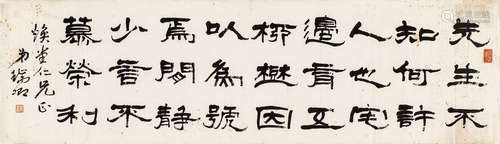 先生不
知何許
人也宅
邊有五
柳樹因
以為號
焉閒靜
少言不
慕榮利
仁兄正
弟瑞